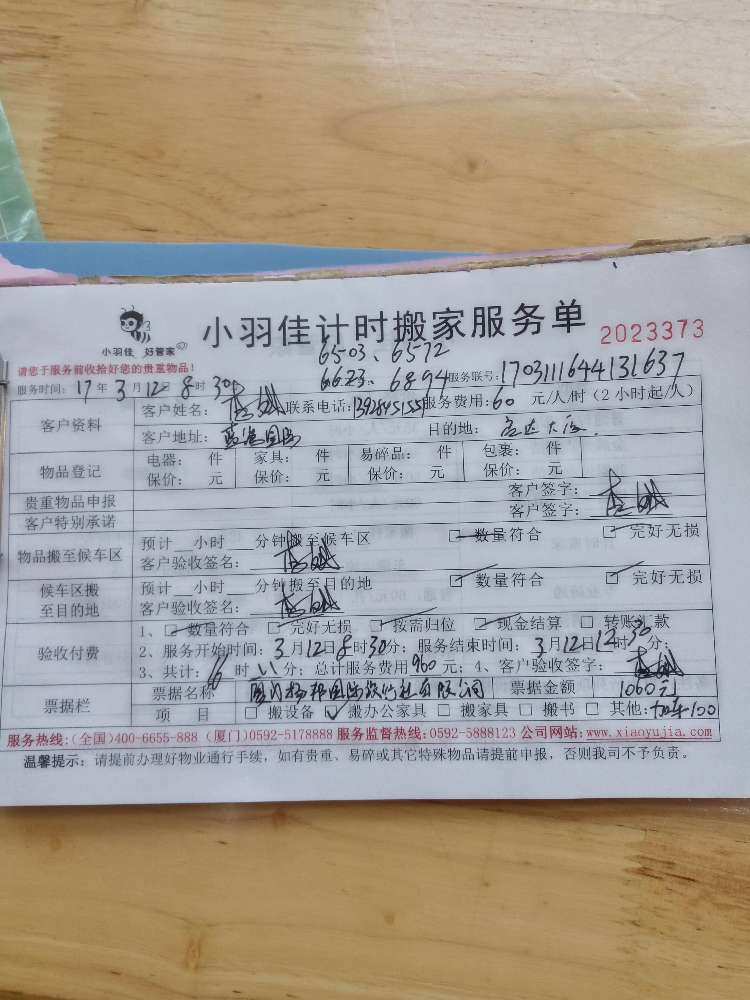 小羽佳 好管家
小羽佳计时搬家服务单 2023373
请您于服务前收拾好您的贵重物品！
6503、6572
6623、6894
服务时间：17年3月12日8时30 服务联号：1703111644131637
客户资料 客户姓名： 联系电话： 服务费用：60元/人/时（2小时起/人）
客户地址： 目的地：
物品登记 电器： 件 家具： 件 易碎品： 件 包裹： 件
保价： 元 保价： 元 保价： 元 保价： 元
贵重物品申报 客户签字：
客户特别承诺 客户签字：
物品搬至候车区 预计__小时__分钟搬至候车区 □数量符合 □完好无损
客户验收签名：
候车区搬至目的地 预计__小时__分钟搬至目的地 □数量符合 □完好无损
客户验收签名：
验收付费 1、□数量符合 □完好无损 □按需归位 □现金结算 □转账汇款
2、服务开始时间：3月12日8时30分；服务结束时间：3月12日12时30分；
3、共计：16时 分；总计服务费用960元；4、客户验收签字：
票据栏 票据名称 票据金额 1060元
项 目 □搬设备 ☑搬办公家具 □搬家具 □搬书 □其他：
服务热线：(全国)400-6655-888 (厦门)0592-5178888 服务监督热线：0592-5888123 公司网站：www.xiaoyujia.com
温馨提示：请提前办理好物业通行手续，如有贵重、易碎或其它特殊物品请提前申报，否则我司不予负责。